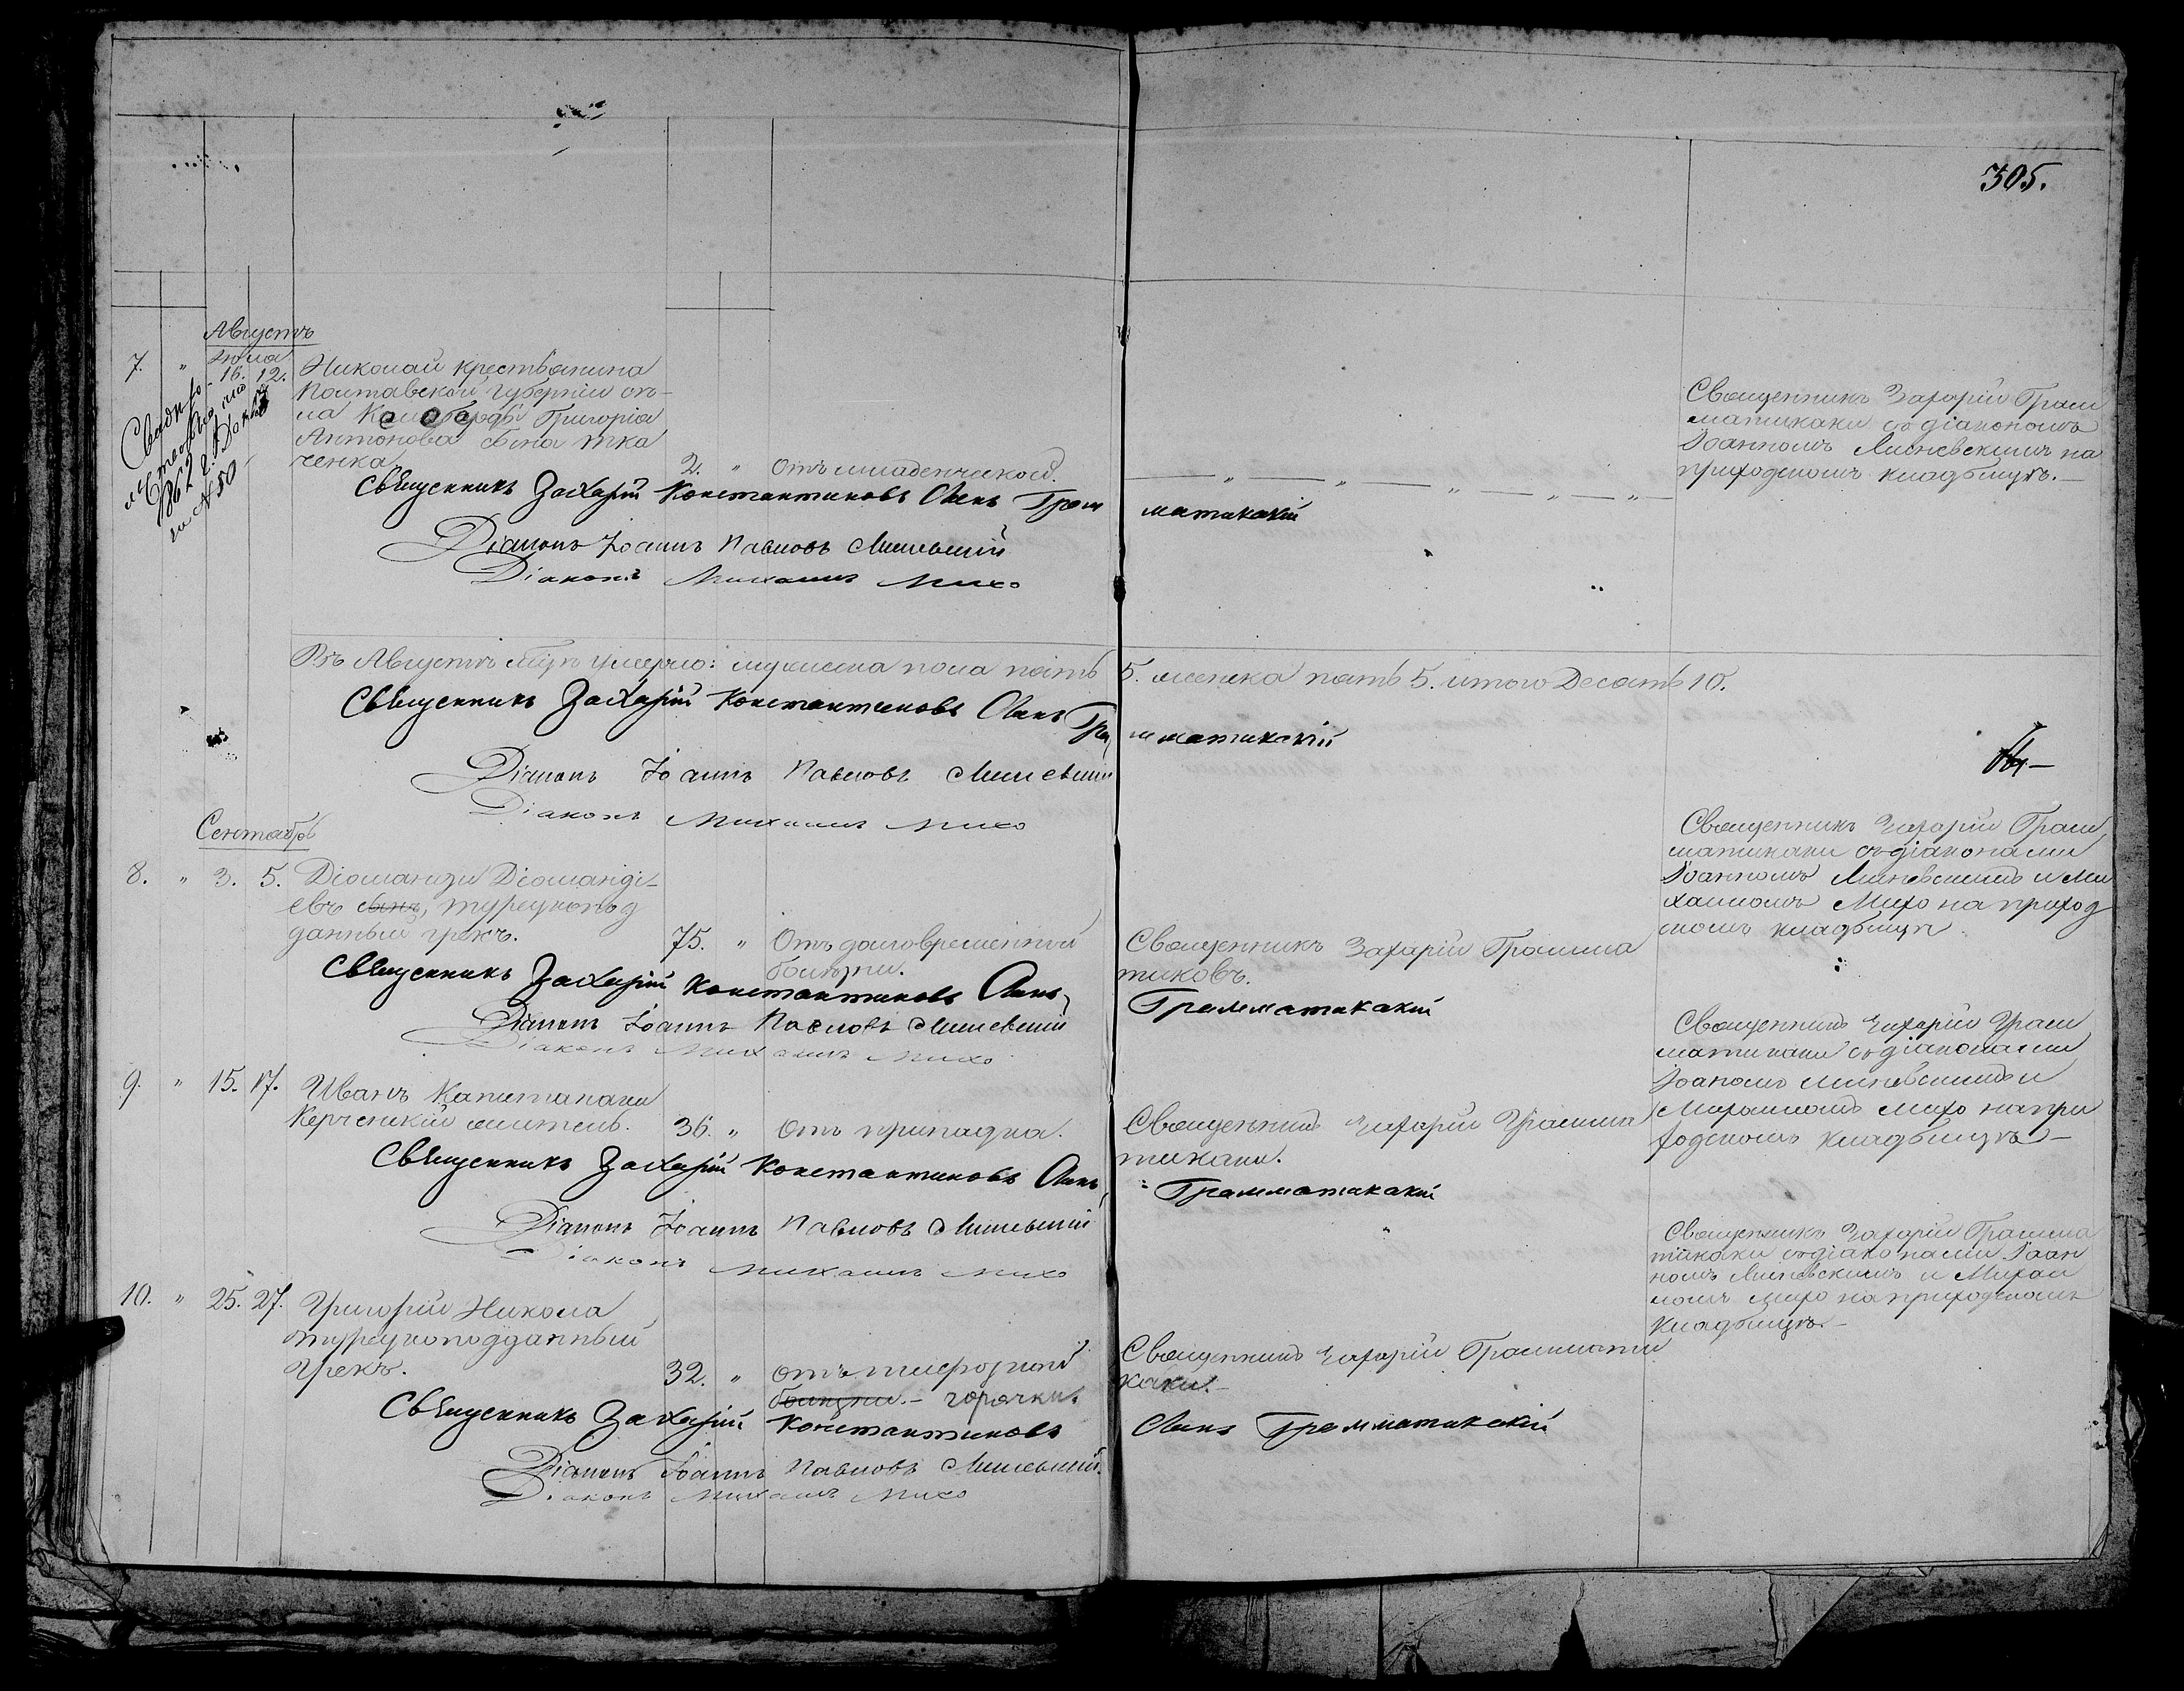 305.
Августъ
7. " Іюля
16. 12.
1862 г.
№ 50
Николай крестьянина
Полтавской губерніи се-
ла Григорія
Антонова сына Тка
ченка
2. " Отъ младенческой.
Священникъ Захарій Грам
матикаки съ діакономъ
Іоанномъ Линевскимъ на
приходскомъ кладбищѣ.—
Священникъ Захарій Константиновъ Сынъ Грам матикакій
Діаконъ Іоаннъ Павловъ Линевскій
Діаконъ Михаилъ Михо
Въ Августѣ мцѣ умерло: мужеска пола пять 5. женска пять 5. итого Десять 10.
Священникъ Захарій Константиновъ Сынъ Гра мматикакій
Діаконъ Іоаннъ Павловъ Линевскій
Діаконъ Михаилъ Михо
Сентябрь
8. " 3. 5. Діоманди Діоманді-
евъ сынъ, турецкопод
данный грекъ.
75. " Отъ долговременной
болѣзни.
Священникъ Захарій Грамма
тиковъ.
Священникъ Захарій Грам
матикаки съ діаконами
Іоанномъ Линевскимъ и Ми
хаиломъ Михо на приход
скомъ кладбищѣ.
Священникъ Захарій Константиновъ Сынъ Грамматикакій
Діаконъ Іоаннъ Павловъ Линевскій
Діаконъ Михаилъ Михо
9. " 15. 17. Иванъ Капитанаки
Керченскій житель.
36. " Отъ припадка.
Священникъ Захарій Грамма
тикаки.
Священникъ Захарій Грам
матикаки съ діаконами
Іоаномъ Линевскимъ и
Михаиломъ Михо на при
ходскомъ кладбищѣ—
Священникъ Захарій Константиновъ Сынъ Грамматикакій
Діаконъ Іоаннъ Павловъ Линевскій
Діаконъ Михаилъ Михо
10. " 25. 27. Григорій Никола
турецкоподданный
грекъ.
32. " Отъ тифозной
болѣзни.— горячки.
Священникъ Захарій Граммати
каки.—
Священникъ Захарій Грамма
тикаки съ діаконами Іоан
номъ Линевскимъ и Михаи
ломъ Михо на приходскомъ
кладбищѣ.—
Священникъ Захарій Константиновъ Сынъ Грамматикакій
Діаконъ Іоаннъ Павловъ Линевскій.
Діаконъ Михаилъ Михо